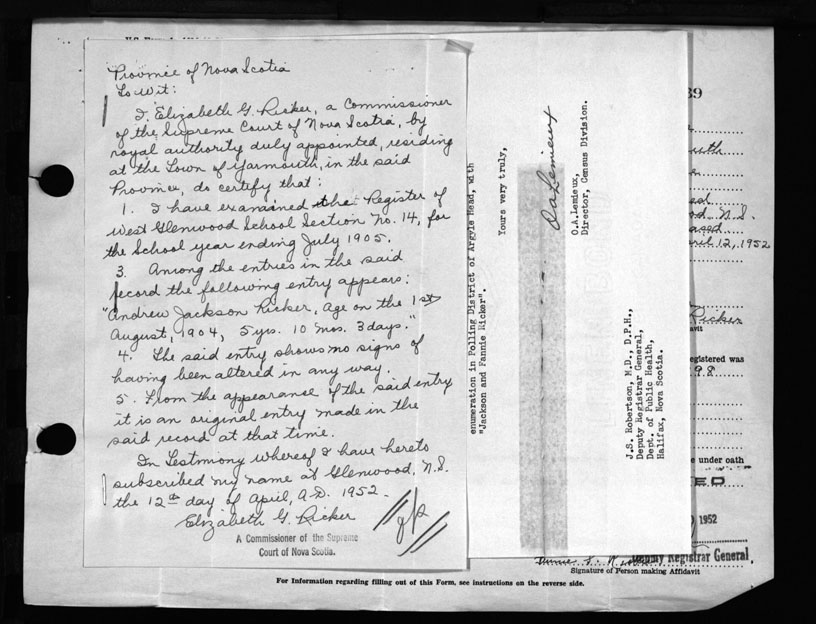 Province of Nova Scotia
To Wit:
I, Elizabeth G. Ricker, a Commissioner
of the Supreme Court of Nova Scotia, by
royal authority duly appointed, residing
at the Town of Yarmouth, in the said
Province, do certify that:
1. I have examined the Register of
West Glenwood School Section No. 14, for
the School year ending July 1905.
3. Among the entries in the said
record the following entry appears:
"Andrew Jackson Ricker, age on the 1st
August, 1904, 5 yrs. 10 mos. 3 days."
4. The said entry shows no signs of
having been altered in any way.
5. From the appearance of the said entry
it is an original entry made in the
said record at that time.
In Testimony whereof I have hereto
subscribed my name at Glenwood, N.S.
the 12th day of April, A.D. 1952.
Elizabeth G. Ricker
A Commissioner of the Supreme
Court of Nova Scotia.
enumeration in Polling District of Argyle Head, with
"Jackson and Fannie Ricker".
Yours very truly,
O A Lemieux
O.A. Lemieux,
Director, Census Division.
J.S. Robertson, M.D., D.P.H.,
Deputy Registrar General,
Dept. of Public Health,
Halifax, Nova Scotia.
39
N.S.
April 12, 1952
Ricker
registered was
898
under oath
1952
Deputy Registrar General
Signature of Person making Affidavit
For Information regarding filling out of this Form, see instructions on the reverse side.